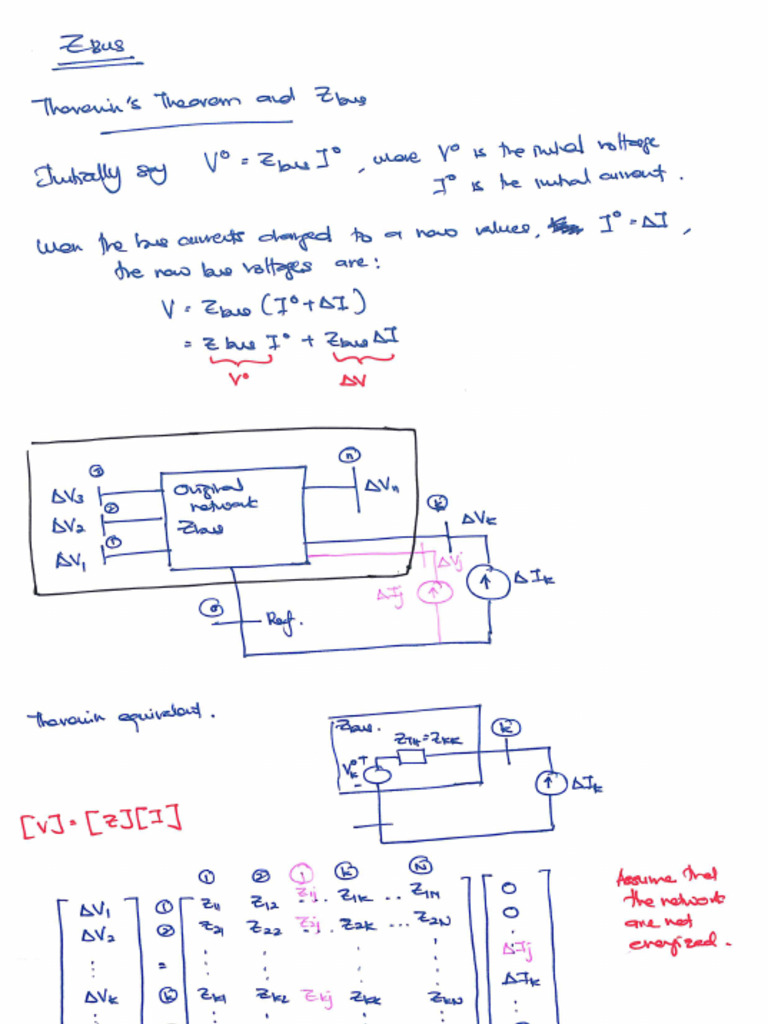 ZBUS
Thevenin's Theorem and Zbus
Initially say V° = Zbus I°, where V° is the initial voltage
I° is the initial current.
When the bus currents changed to a new values, I° = ΔI,
the new bus voltages are:
V = Zbus (I° + ΔI)
= Zbus I° + Zbus ΔI
V° ΔV
③ ⓝ
ΔV3 Original ΔVn
② network ⓚ
ΔV2 Zbus ΔVk
① ΔVj
ΔV1 ΔIj ΔIk
⓪ Ref.
Thevenin equivalent.
Zbus. ⓚ
ZTH = ZKK
Vk° + -
ΔIk
[V] = [Z][I]
① ② ⓙ ⓚ Ⓝ
ΔV1 ① Z11 Z12 Z1j ... Z1K ... Z1N 0
ΔV2 ② Z21 Z22 Z2j Z2K ... Z2N 0
⋮ = ⋮ ⋮ ⋮ ⋮ ΔIj
ΔVk ⓚ ZK1 ZK2 ZKj ZKK ZKN ΔIk
Assume that
the network
are not
energized.